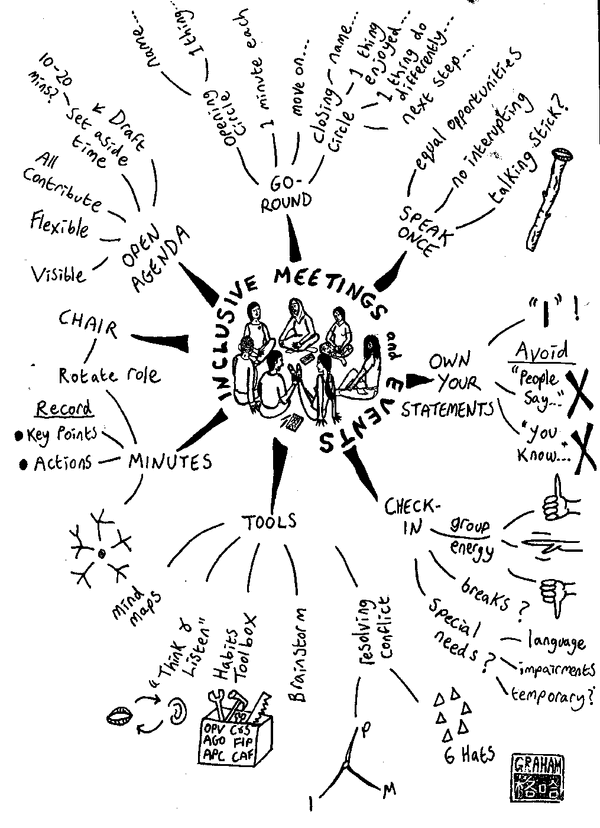 INCLUSIVE MEETINGS
and EVENTS
GO-
ROUND
Opening
Circle
name...
1 thing...
1 minute each
move on...
closing
circle
name...
1 thing
enjoyed...
1 thing do
differently...
next step...
SPEAK
ONCE
equal opportunities
no interupting
talking stick?
OWN
YOUR
STATEMENTS
"I"!
Avoid
"People
Say..."
"You
Know..."
CHECK-
IN
group
energy
breaks?
Special
needs?
language
impairments
temporary?
resolving
conflict
P
I
M
6 Hats
TOOLS
Brainstorm
Habits
Toolbox
OPV C&S
AGO FIP
APC CAF
"Think &
Listen"
mind
maps
MINUTES
Record
• Key Points
• Actions
Rotate role
CHAIR
OPEN
AGENDA
Visible
Flexible
All
Contribute
set aside
time
10-20
mins?
Draft
GRAHAM